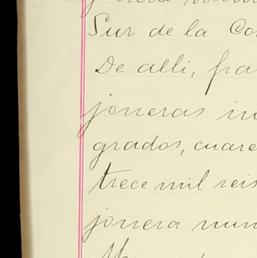 Sur de la Co
De alli, fra
joneras in
grados, cuare
trece mil seis
jonera nu